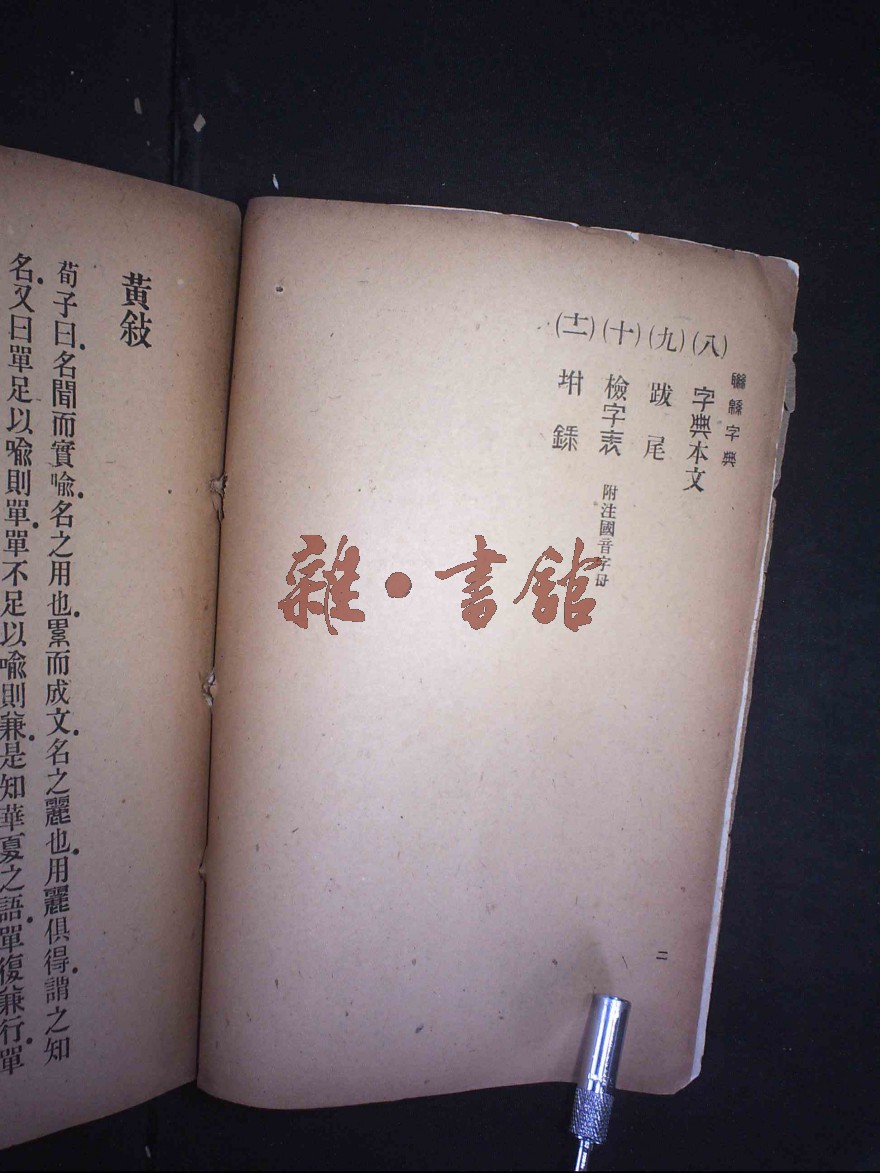 聯緜字典
(八) 字典本文
(九) 跋尾
(十) 檢字表 附注國音字母
(十二) 坿錄
二
雜·書館
黃敍
荀子曰.名聞而實喻.名之用也.累而成文.名之麗也.用麗俱得.謂之知
名.又曰單足以喻則單.單不足以喻則兼.是知華夏之語.單復兼行.單